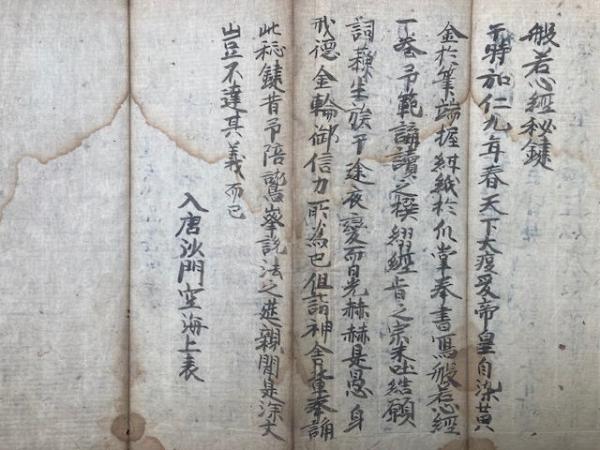 般若心經秘鍵
于時加仁九年春天下大疫爰帝皇自染黄
金於筆端握紺紙於爪掌奉書寫般若心經
一巻予範講讀之撰綴經旨之宗未吐結願
詞蘇生族予途夜變而日光赫赫是愚身
戒德金輪御信力所為也但詣神舎輩奉誦
此秘鍵昔予陪鷲峯説法之莚親聞是深文
豈不達其義而已
入唐沙門空海上表